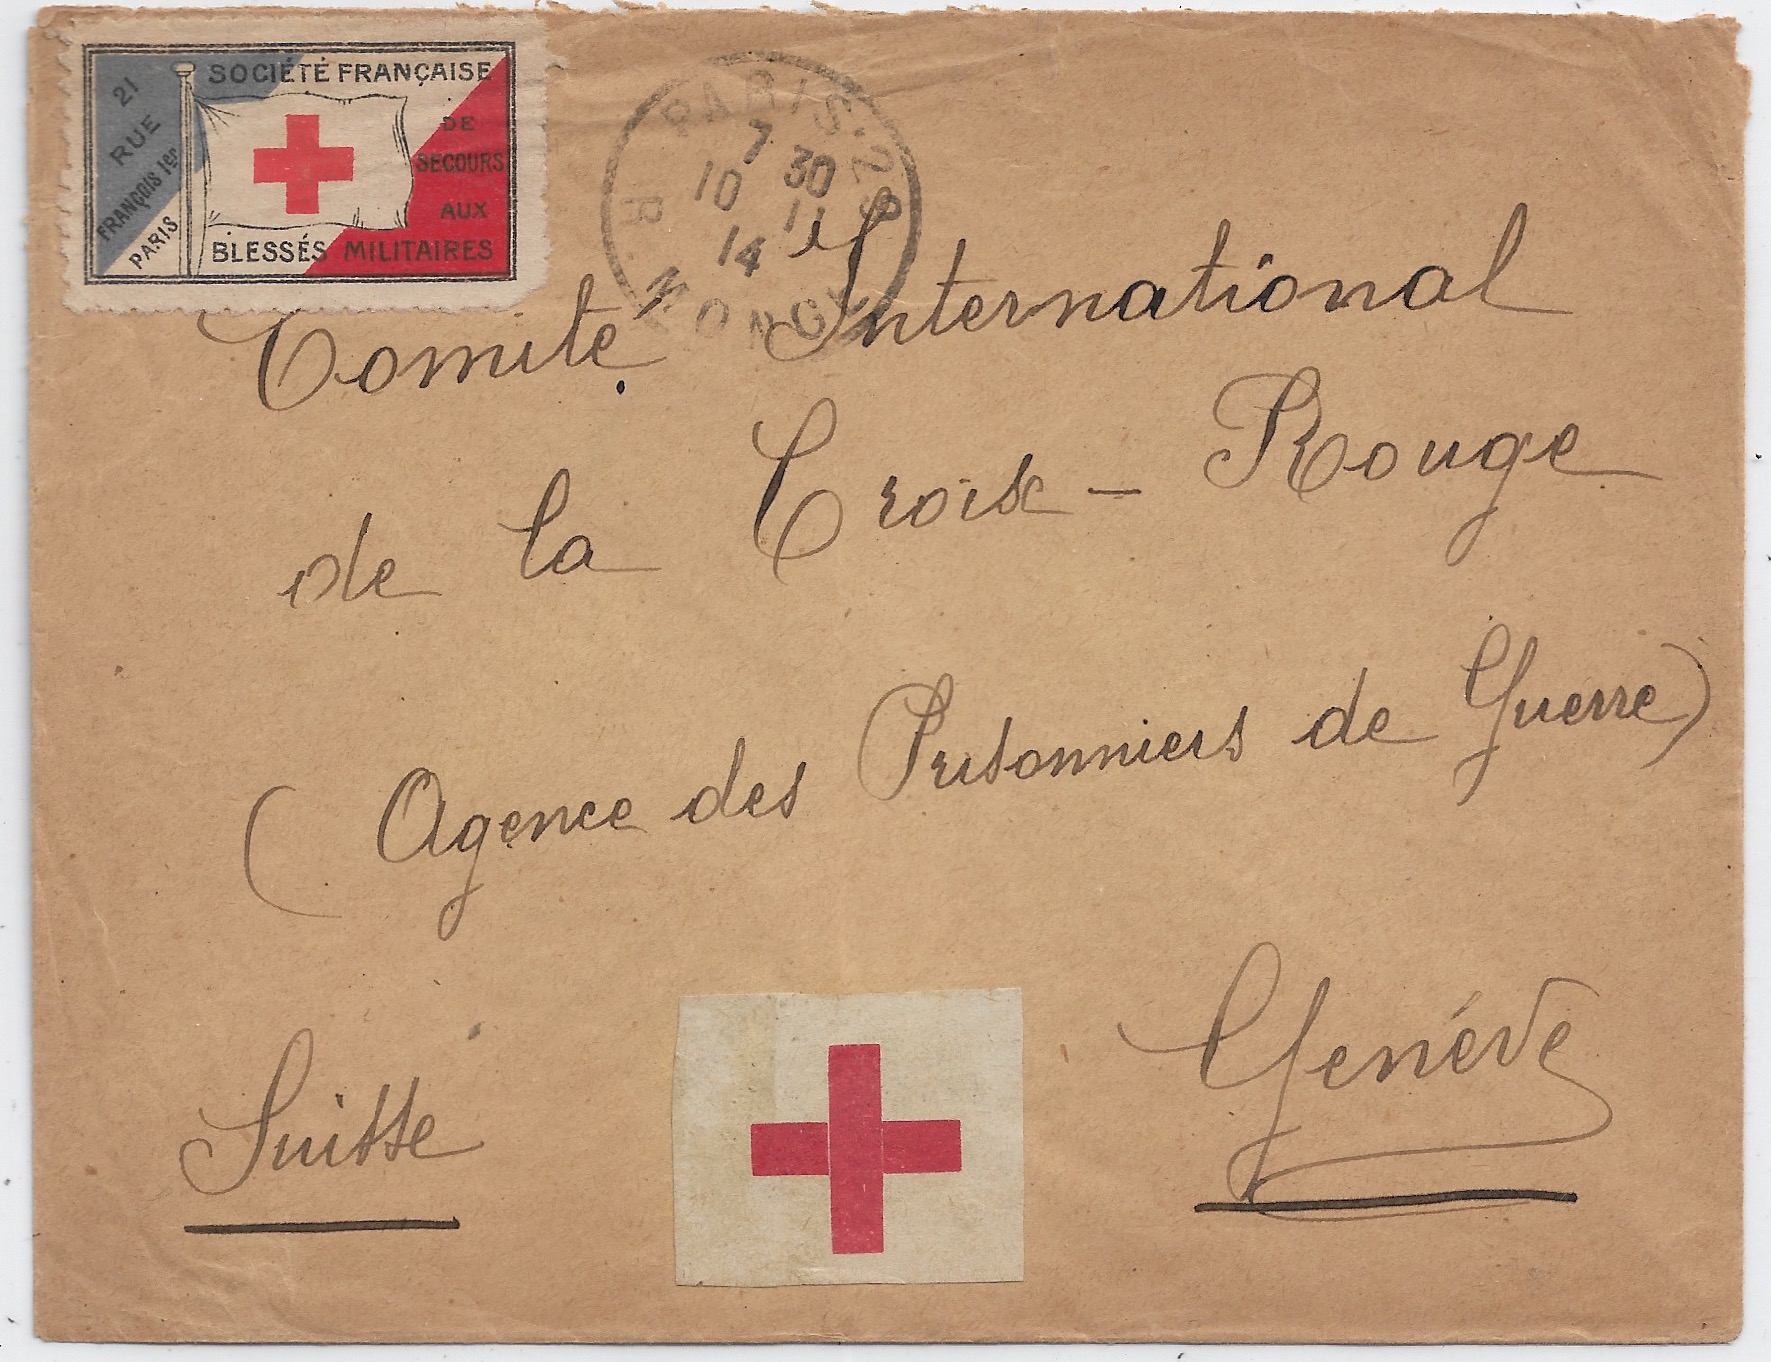 SOCIÉTÉ FRANÇAISE
DE
SECOURS
AUX
BLESSÉS MILITAIRES
21
RUE
FRANÇOIS Ier
PARIS
PARIS·
7 30
10 11
14
R. MONGE
Comité International
de la Croix-Rouge
(Agence des Prisonniers de Guerre)
Genéve
Suisse